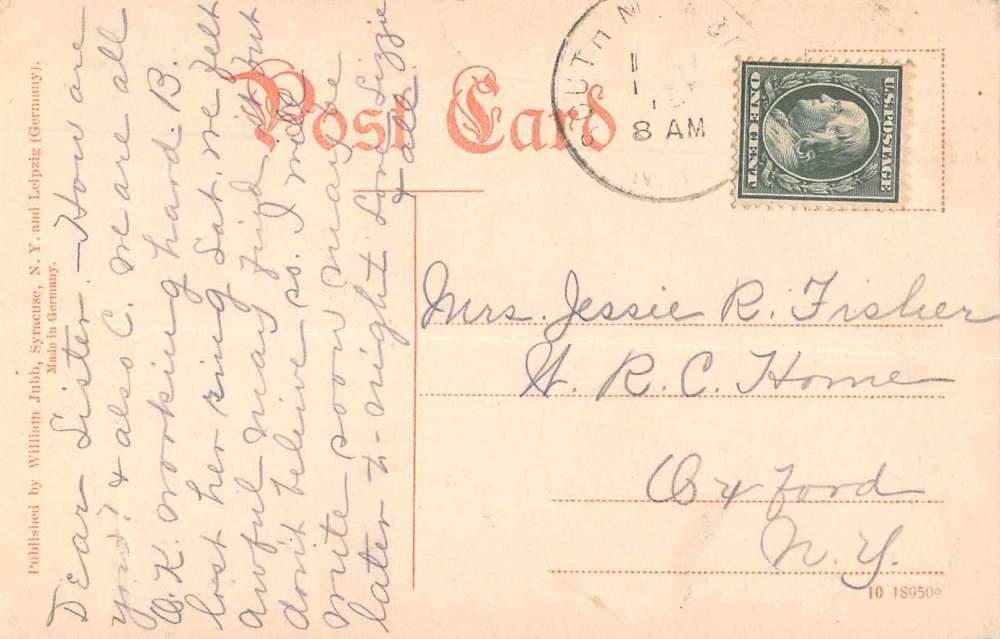 Post Card
SOUTH N
8 AM
N.Y.
U.S. POSTAGE
ONE CENT
Published by William Jubb, Syracuse, N. Y. and Leipzig (Germany).
Made in Germany.
Dear Sister. - How are
you? & also C. We are all
O.K. working hard. B.
lost her ring Sat. we felt
awful may find it but
don't beleive so. I will
write soon maybe
later to-night Love Lizzie
& all.
Mrs. Jessie R. Fisher
W. R. C. Home
Oxford
N.Y.
10 18950